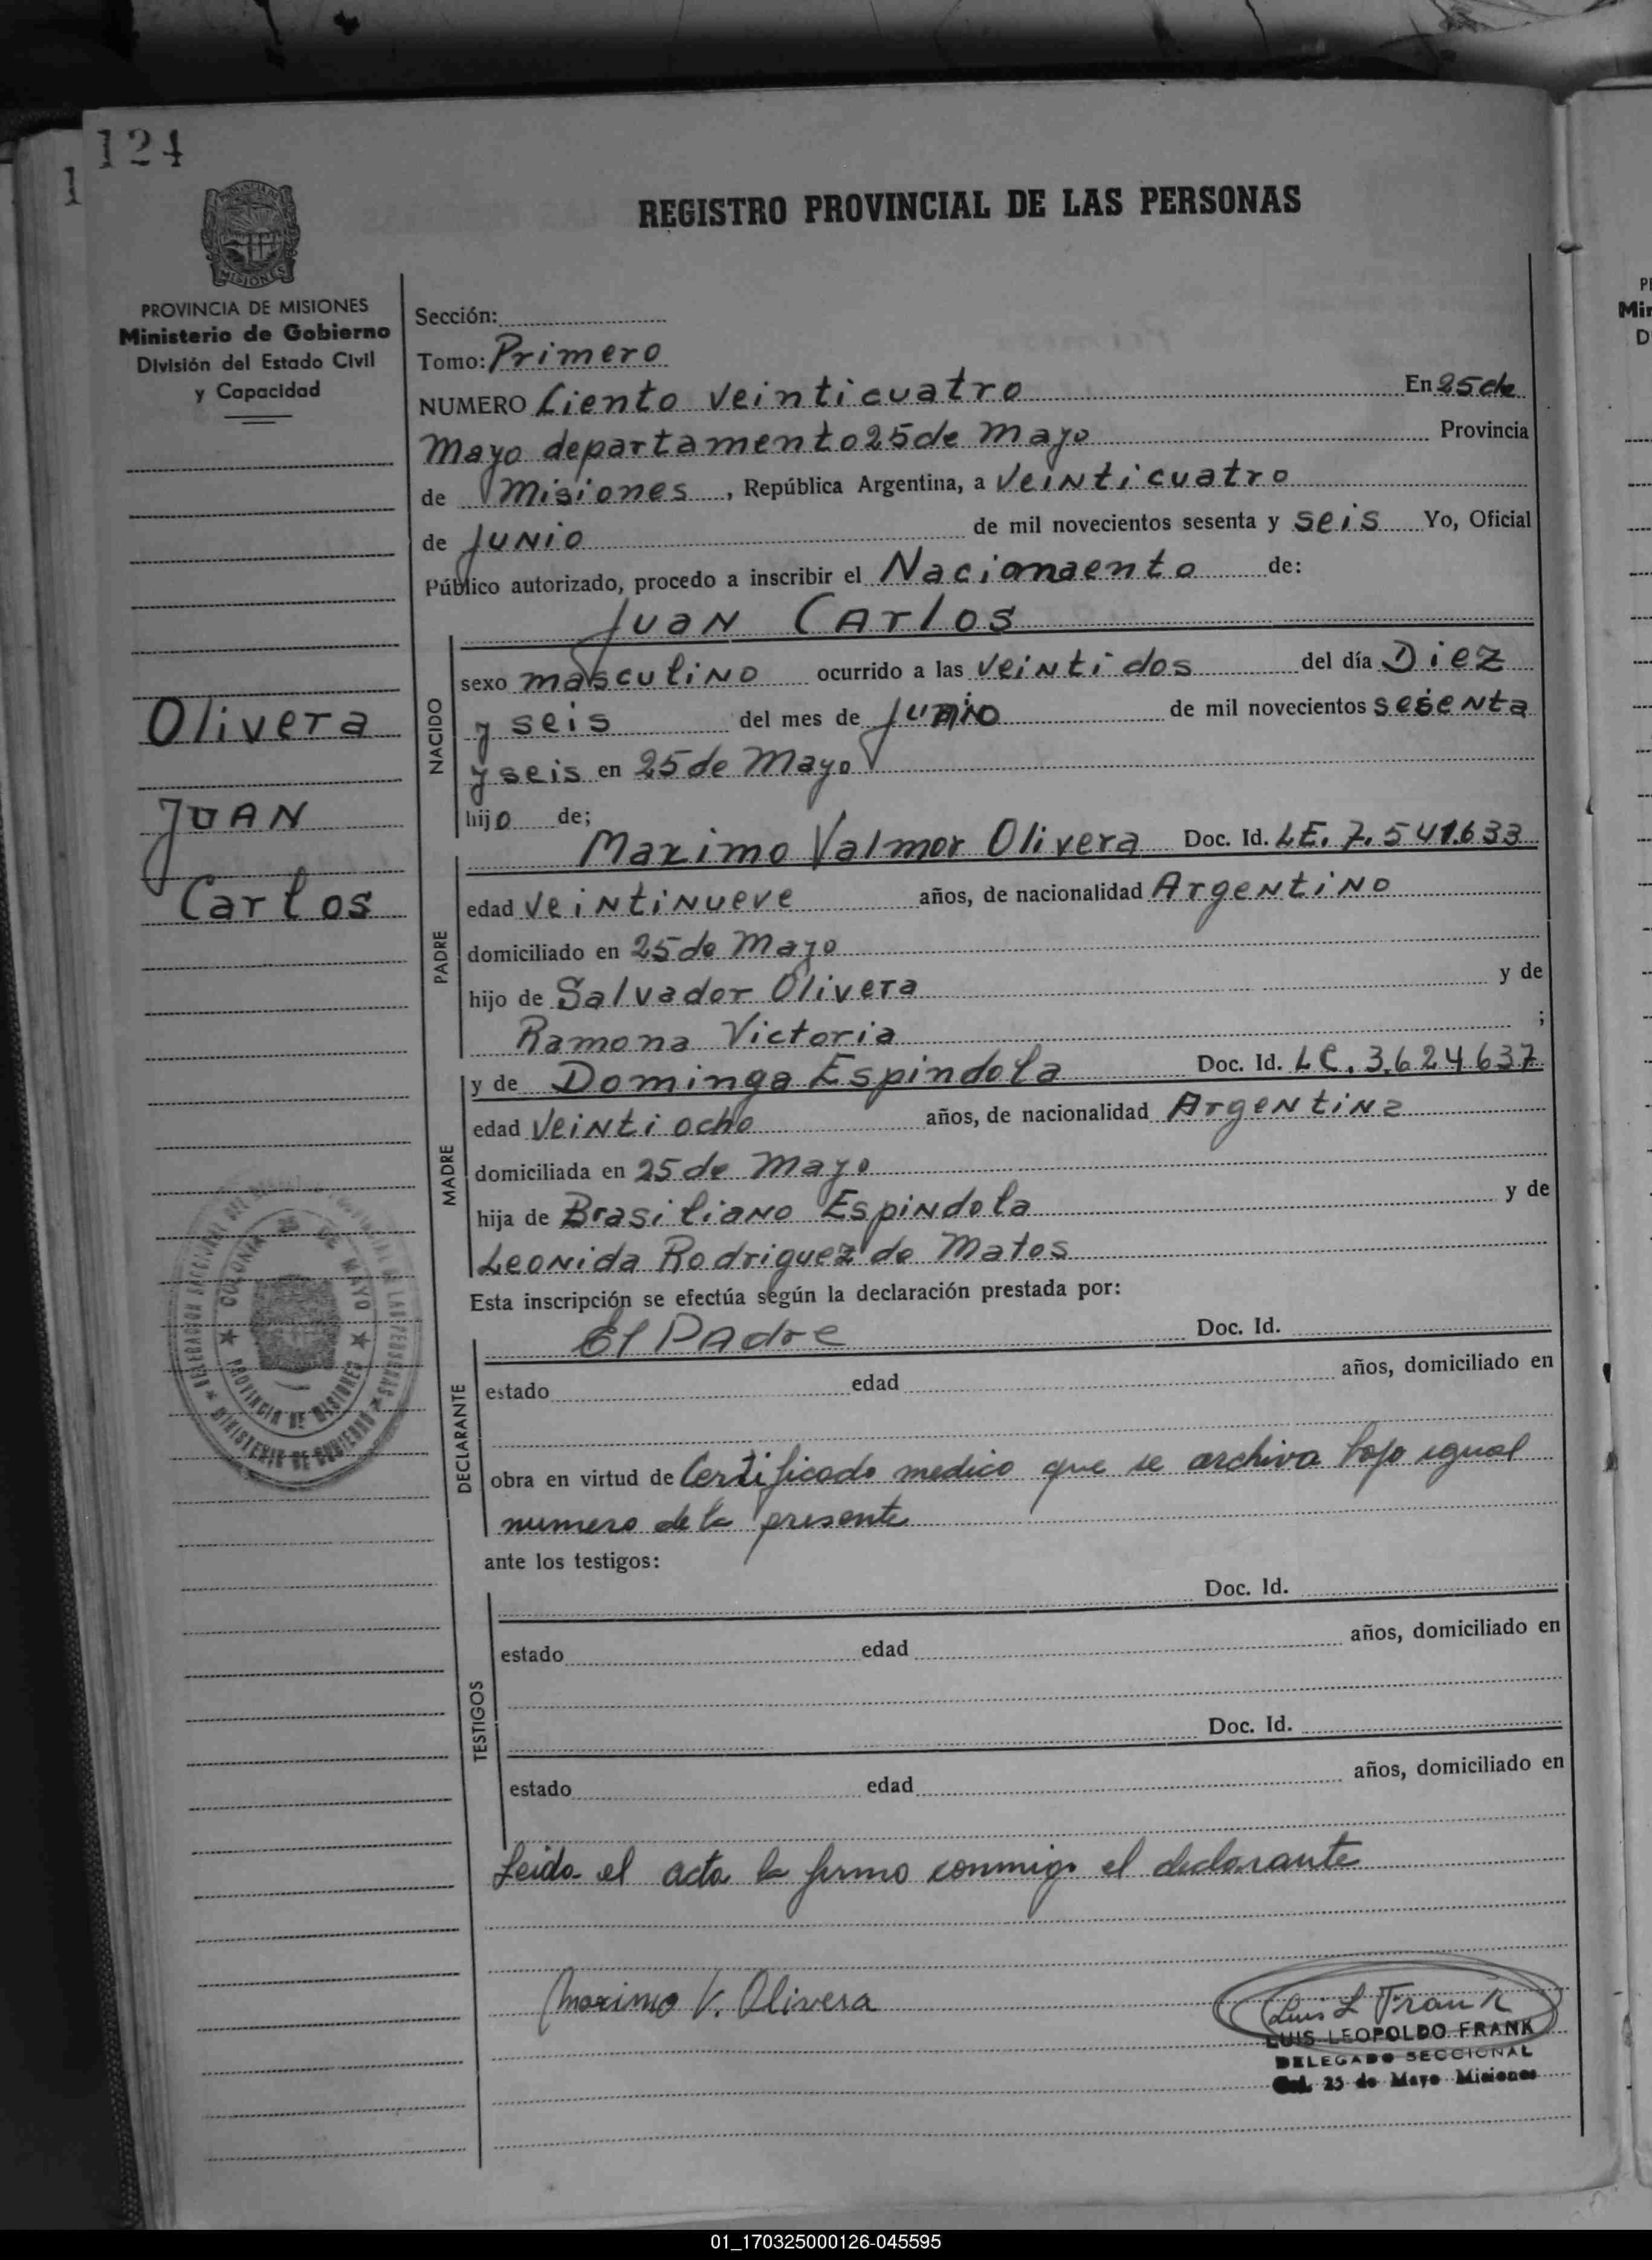 124
1
REGISTRO PROVINCIAL DE LAS PERSONAS
MISIONES
PROVINCIA DE MISIONES
Ministerio de Gobierno
División del Estado Civil
y Capacidad
Sección:
Tomo: Primero
NUMERO Ciento veinticuatro En 25 de
Mayo departamento 25 de Mayo Provincia
de Misiones, República Argentina, a veinticuatro
de Junio de mil novecientos sesenta y seis Yo, Oficial
Público autorizado, procedo a inscribir el Nacimaento de:
Juan Carlos
NACIDO
sexo masculino ocurrido a las veinti dos del día Diez
y seis del mes de Junio de mil novecientos sesenta
y seis en 25 de Mayo
hijo de;
Olivera
Juan
Carlos
PADRE
Maximo Valmor Olivera Doc. Id. LE. 7.541.633
edad veintinueve años, de nacionalidad Argentino
domiciliado en 25 de Mayo
hijo de Salvador Olivera y de
Ramona Victoria ;
MADRE
y de Dominga Espindola Doc. Id. LC. 3.624.637
edad veinti ocho años, de nacionalidad Argentina
domiciliada en 25 de Mayo
hija de Brasiliano Espindola y de
Leonida Rodriguez de Matos
Esta inscripción se efectúa según la declaración prestada por:
DECLARANTE
El Padre Doc. Id.
estado edad años, domiciliado en
obra en virtud de Certificado medico que se archiva bajo igual
numero de la presente
ante los testigos:
COLONIA 25 DE MAYO
PROVINCIA DE MISIONES
MINISTERIO DE GOBIERNO
TESTIGOS
Doc. Id.
estado edad años, domiciliado en
Doc. Id.
estado edad años, domiciliado en
Leida el acta la firma conmigo el declarante
Maximo V. Olivera
Luis L Frank
LUIS LEOPOLDO FRANK
DELEGADO SECCIONAL
Col. 25 de Mayo Misiones
PI
Min
D
01_170325000126-045595